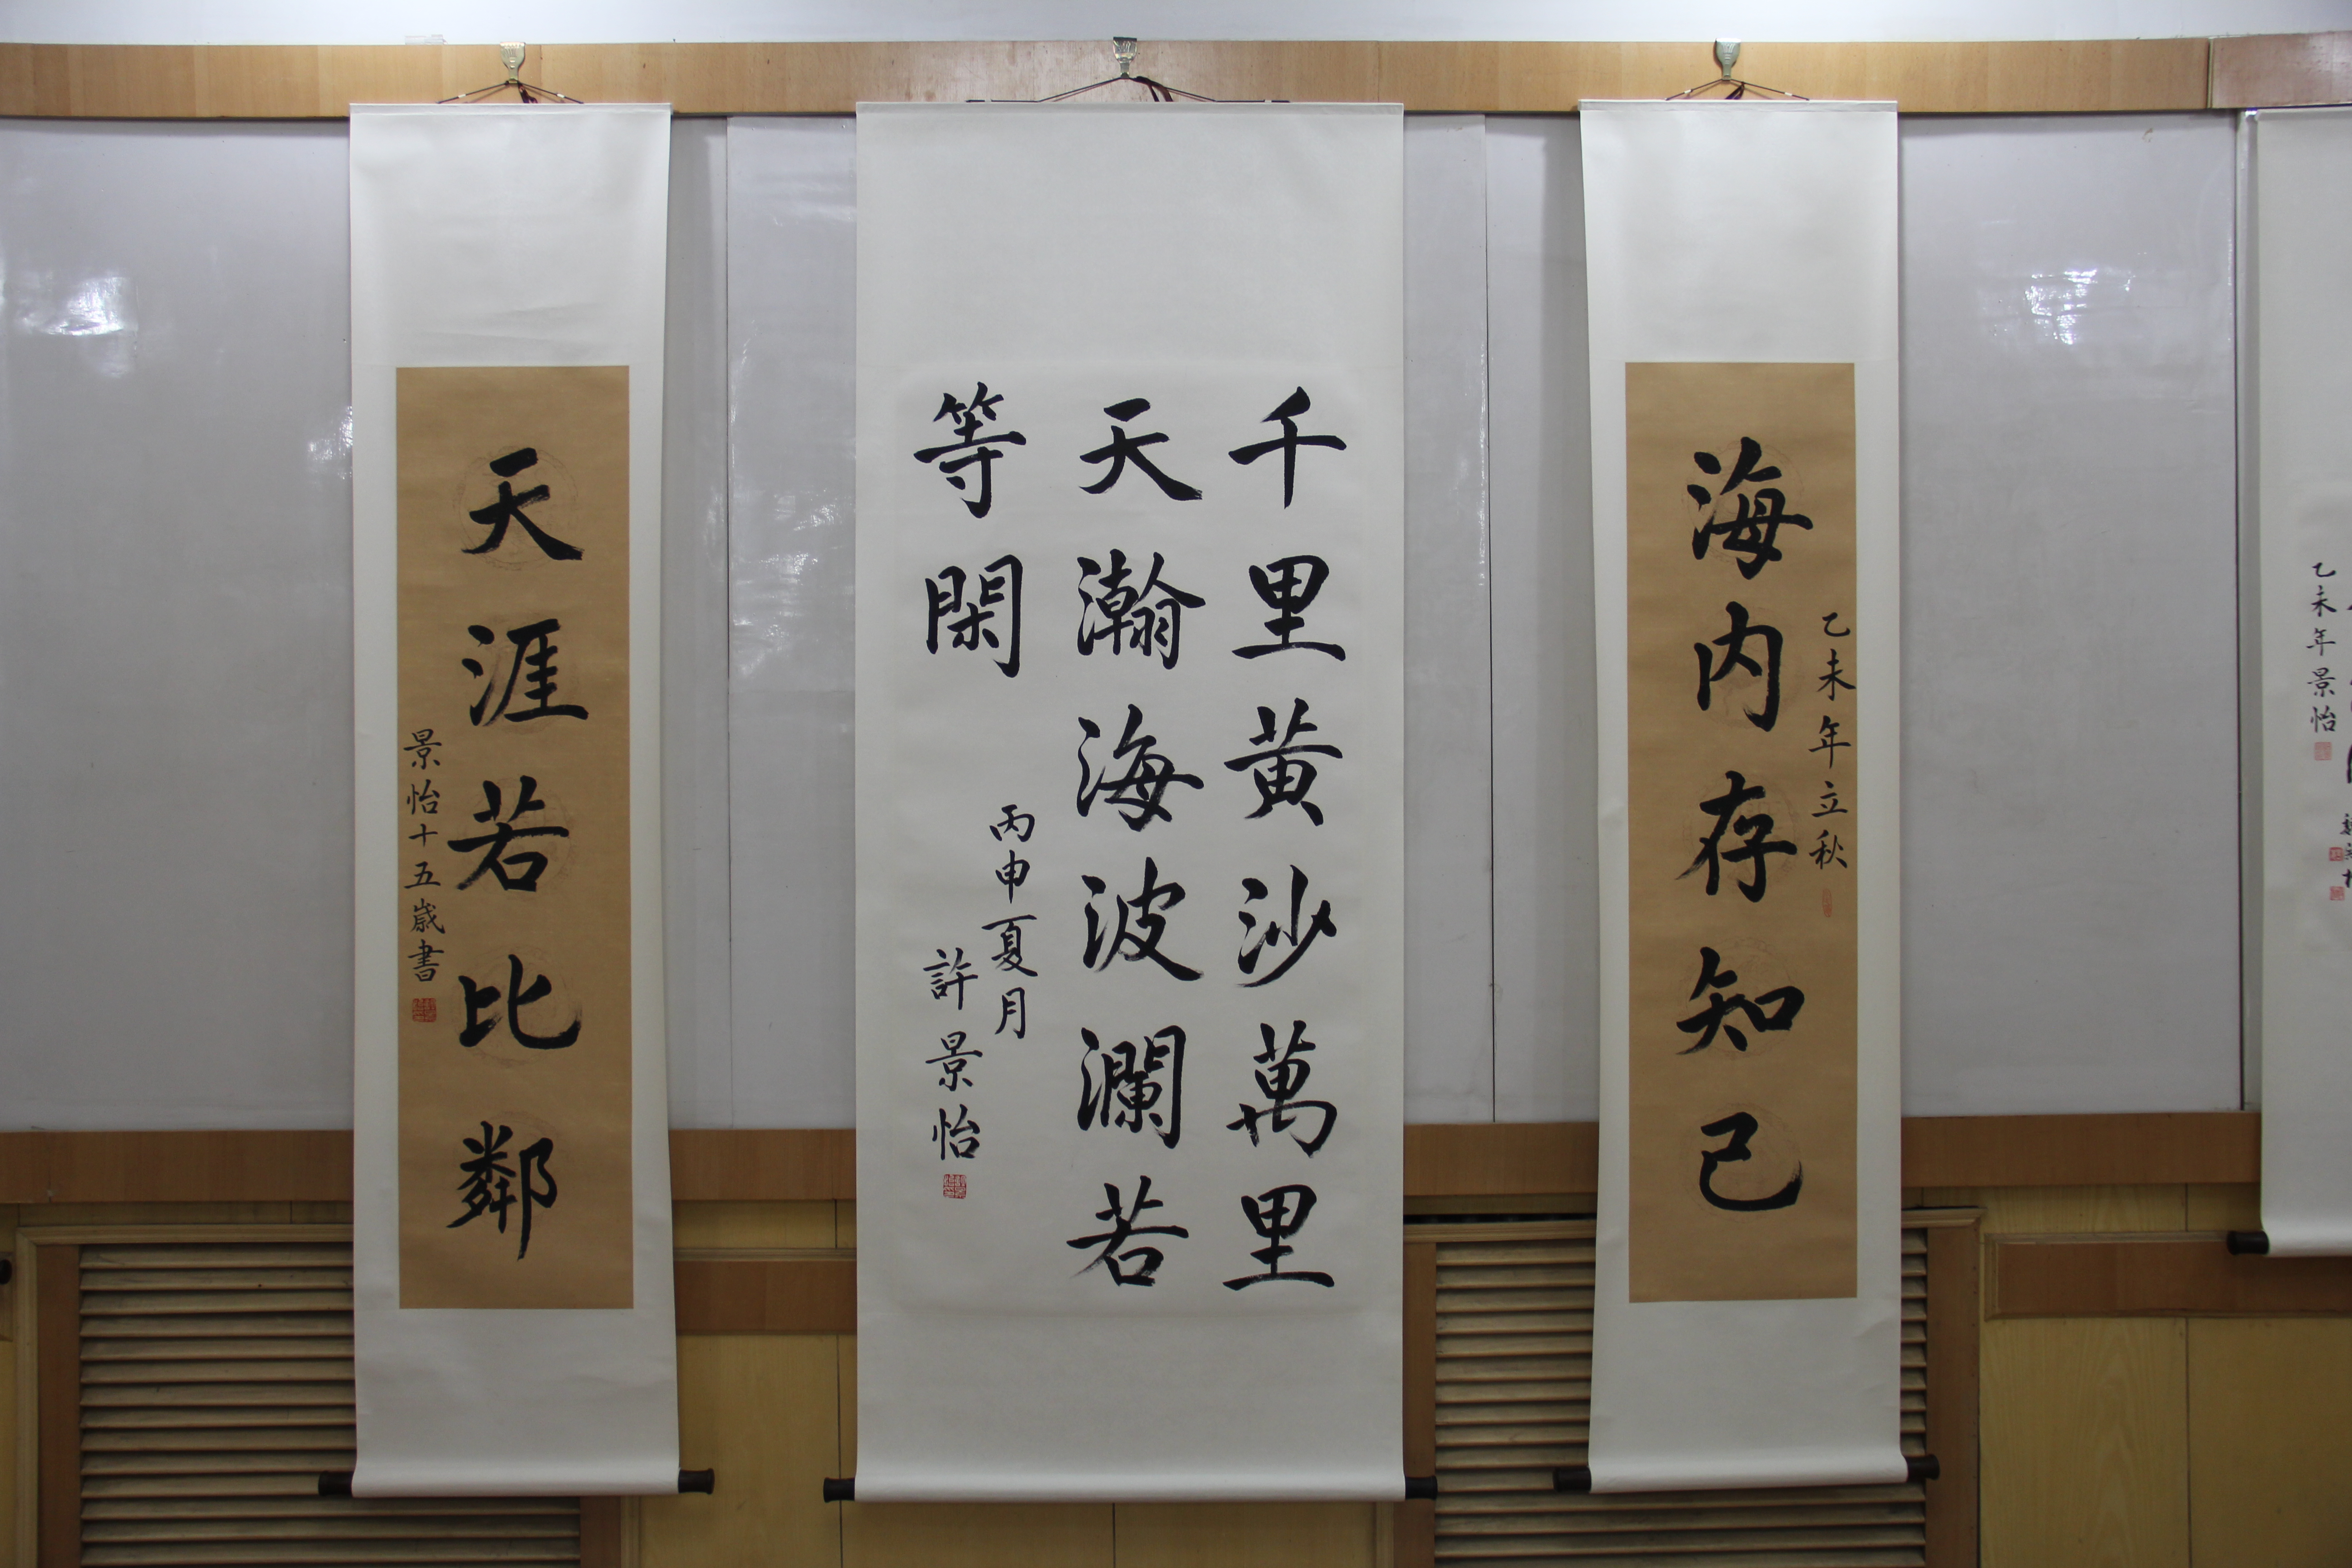 乙未年立秋
海内存知己
千里黄沙萬里
天瀚海波瀾若
等閑
丙申夏月
許景怡
天涯若比鄰
景怡十五歳書
乙未年景怡